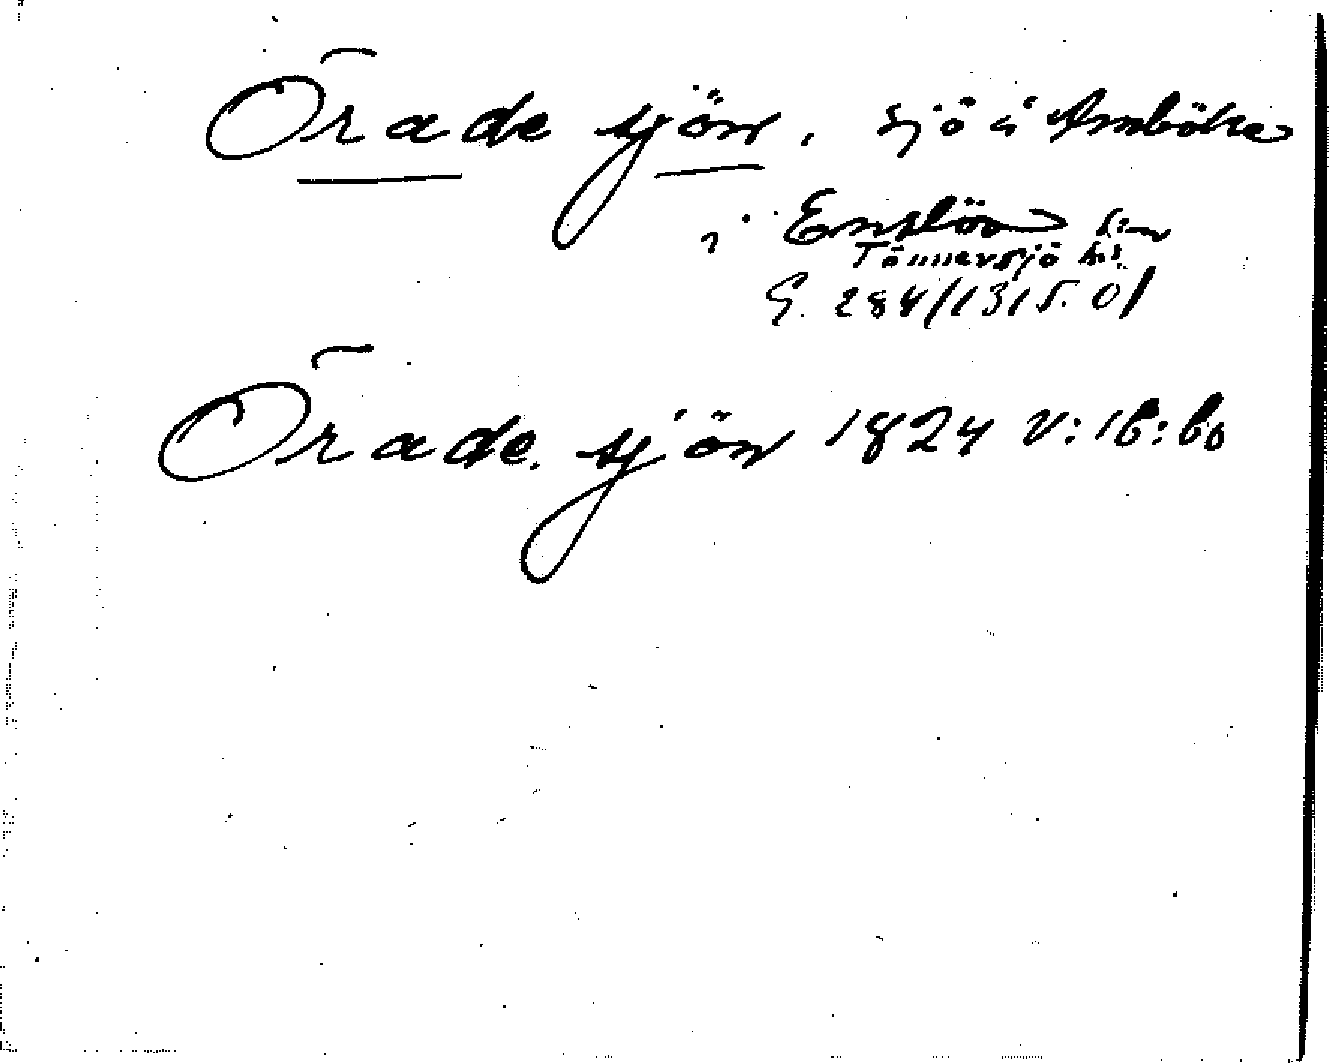 Örade sjön, sjö i Amböke
i Enslöv s:n
Tönnersjö hd.
G. 284/1315. Ö/
Örade sjön 1824 V:16:60